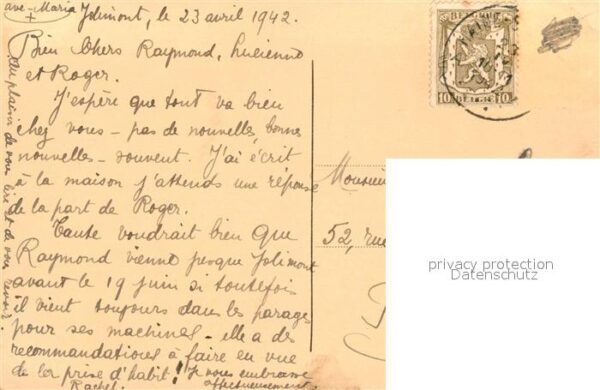 ave-Maria
+
Jolimont, le 23 avril 1942.
Bien Chers Raymond, Lucienne
et Roger.
J'espère que tout va bien
chez vous - pas de nouvelles, bonnes
nouvelles - souvent. J'ai écrit
à la maison j'attends une réponse
de la part de Roger.
Tante voudrait bien que
Raymond vienne jusque Jolimont
avant le 19 juin si toutefois
il vient toujours dans les parages
pour ses machines - elle a des
recommandations à faire en vue
de la prise d'habit! Je vous embrasse
affectueusement
Rachel.
Au plaisir de vous lire et de vous revoir.
BELGIQUE
10 BELGIË 10
Monsieur
52, rue
privacy protection
Datenschutz